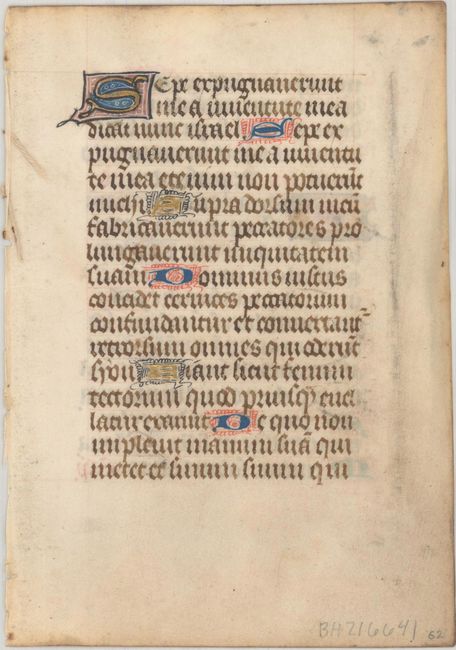 Sepe expugnaverunt
me a iuventute mea
dicat nunc israel Sepe ex
pugnaverunt me a iuventu
te mea etenim non potuerūt
michi Supra dorsum meū
fabricaverunt peccatores pro
lungaverunt iniquitatem
suam Dominus iustus
concidet cervices peccatorum
confundantur et convertant
retrorsum omnes qui oderūt
syon Fiant sicut fenum
tectorum quod priusq̄ evel
latur exaruit De quo non
impleuit manum suā qui
metet et sinum suum qui
BH216641
62